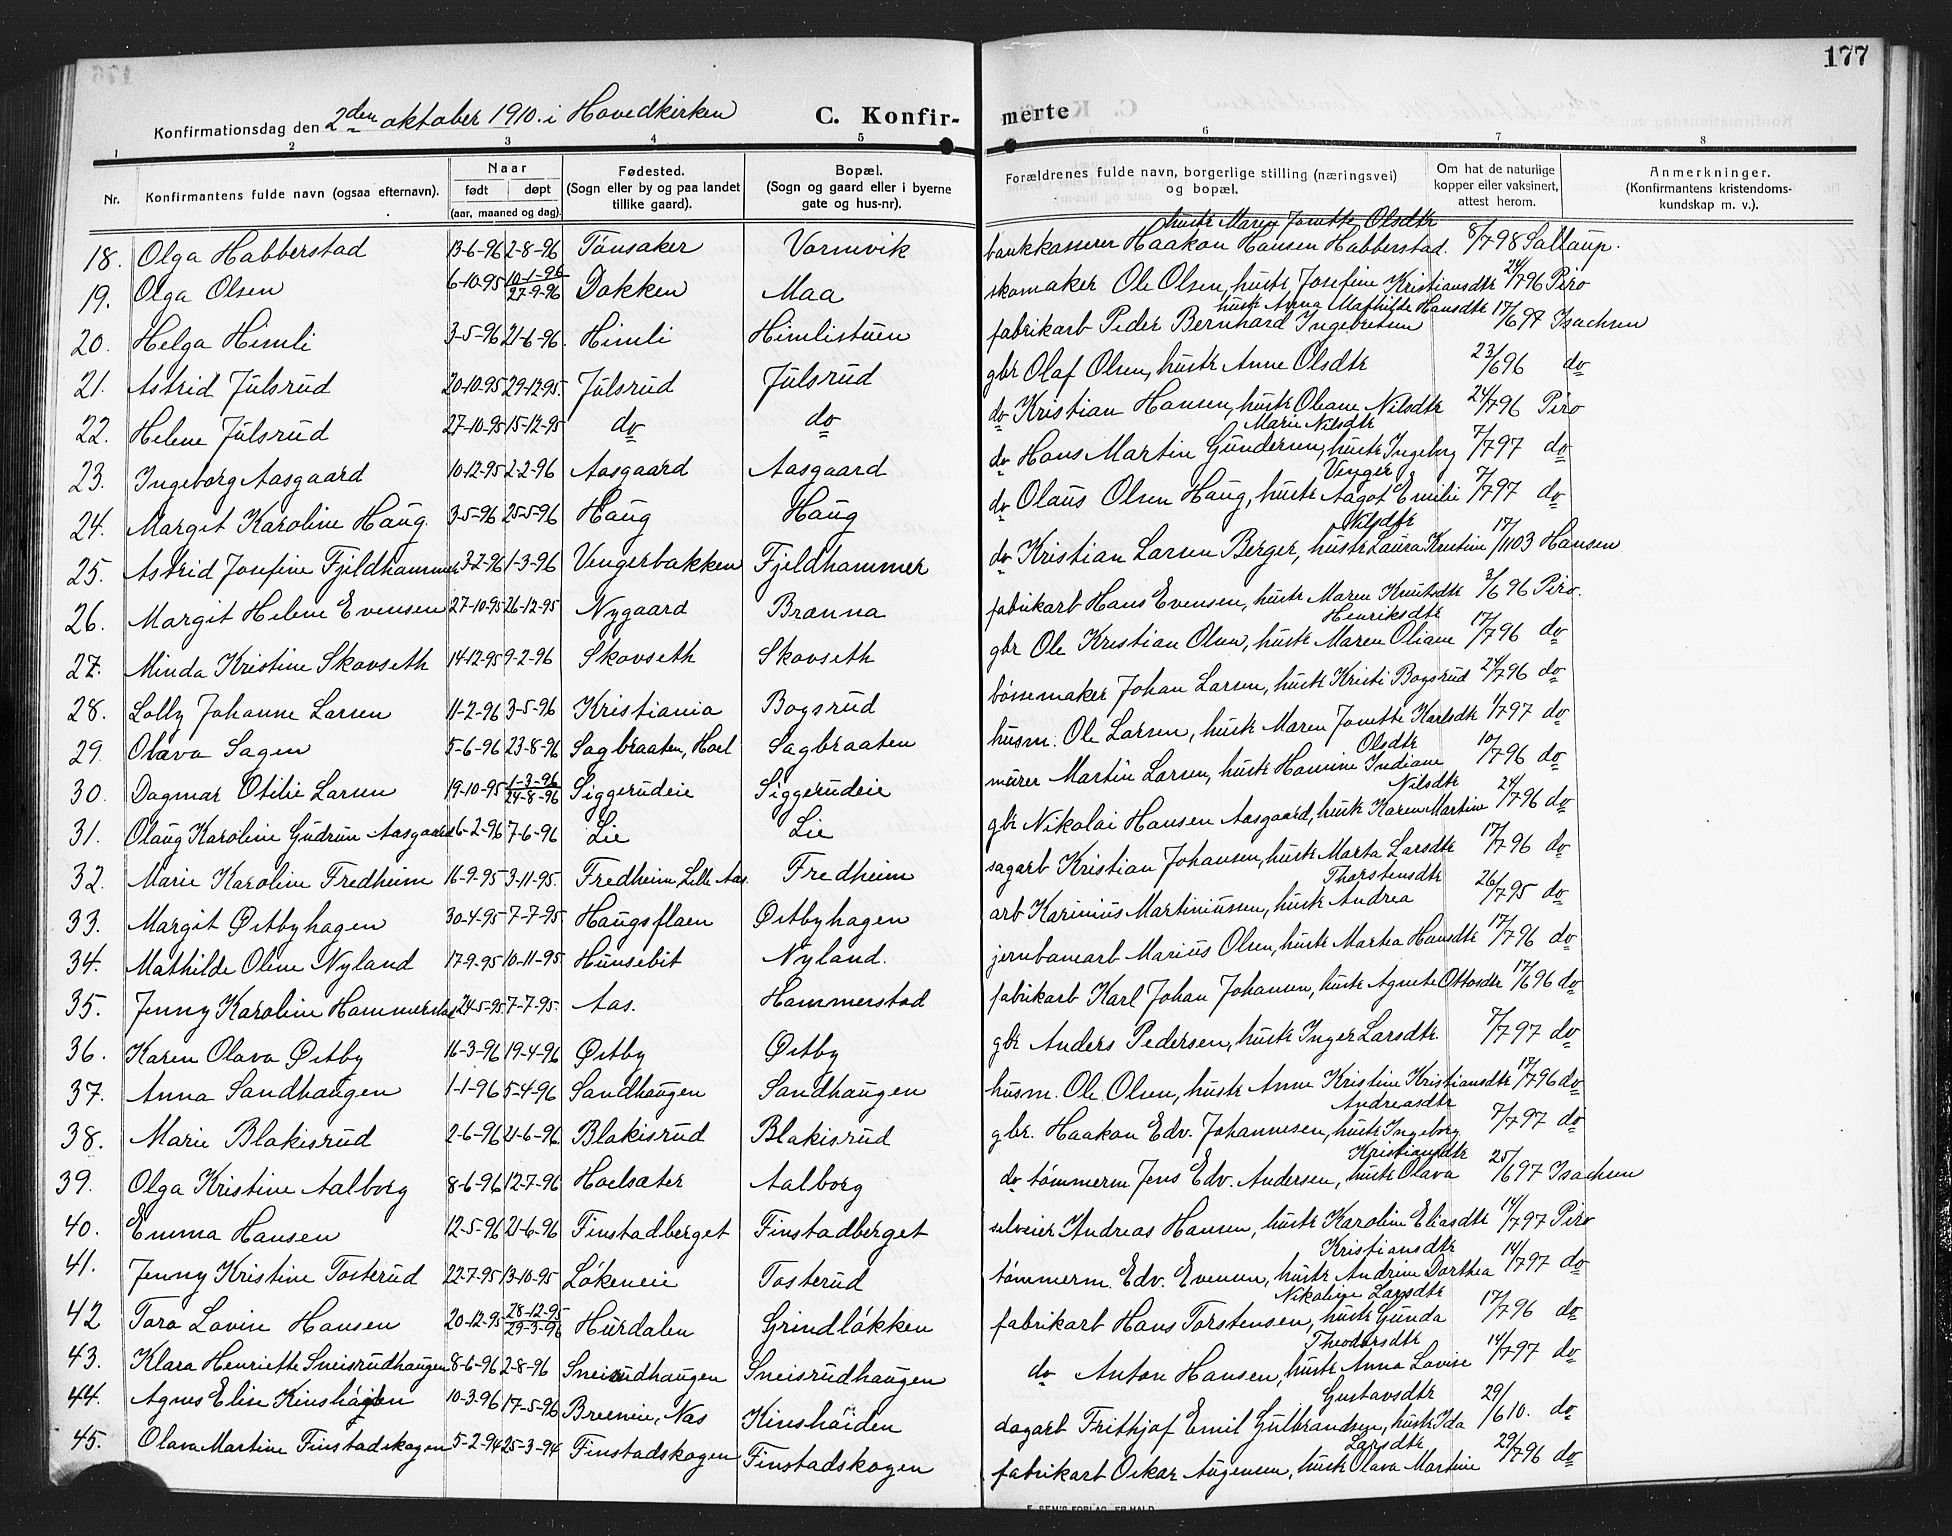 177
Konfirmationsdag den 2den oktober 1910. i Hovedkirken C. Konfir- merte
1 2 3 4 5 6 7 8
Nr. Konfirmantens fulde navn (ogsaa efternavn). Naar født døpt (aar, maaned og dag). Fødested. (Sogn eller by og paa landet tillike gaard). Bopæl. (Sogn og gaard eller i byerne gate og hus-nr). Forældrenes fulde navn, borgerlige stilling (næringsvei) og bopæl. Om hat de naturlige kopper eller vaksinert, attest herom. Anmerkninger. (Konfirmantens kristendoms- kundskap m. v.).
18. Olga Habberstad 13-6-96 2-8-96 Tönsaker Vormvik bankkasserer Haakon Hansen Habberstad. hustr Maren Jonette Olsdtr 8/7 98 Saltaup.
19. Olga Olsen 6-10-95 10-1-96 27-9-96 Dokken Maa skomaker Ole Olsen, hustr Josefine Kristiansdtr 24/7 96 Piro
20. Helga Himli 3-5-96 21-6-96. Himli Himlistuen fabrikarb Peder Bernhard Ingebretsen hustr Anna Mathilde Hansdtr 17/6 97 Isachsen
21. Astrid Julsrud 20-10-95 29-12-95. Julsrud Julsrud gbr Olaf Olsen, hustr Anne Olsdtr 23/6 96 do
22. Helene Julsrud 27-10-95 15-12-95 do do do Kristian Hansen, hustr Oliane Nilsdtr 24/7 96 Piro
23. Ingeborg Aasgaard 10-12-95 2-2-96 Aasgaard Aasgaard do Hans Martin Gundersen, hustr Ingeborg Marie Nilsdtr 7/7 97 do
24. Margit Karoline Haug. 3-5-96 25-5-96 Haug Haug do Olaus Olsen Haug, hustr Aagot Emilie Venger 7/7 97 do
25. Astrid Josefine Fjeldhammer 3-2-96 1-3-96 Vengerbakken Fjeldhammer do Kristian Larsen Berger, hustr Laura Kristine Nilsdtr 17/11 03 Hansen
26. Margit Helene Evensen 27-10-95 26-12-95 Nygaard Brænna fabrikarb Hans Evensen, hustr Maren Knutsdtr 3/6 96 Piro.
27. Minda Kristine Skovseth 14-12-95 9-2-96 Skovseth Skovseth gbr Ole Kristian Olsen, hustr Maren Oliane Henriksdtr 17/7 96 do
28. Lolly Johanne Larsen 11-2-96 3-5-96 Kristiania Bogsrud bössemaker Johan Larsen, hustr Kristi Bogsrud 24/7 96 do
29. Olava Sagen 5-6-96 23-8-96 Sagbraaten, Hoel Sagbraaten husm. Ole Larsen, hustr Maren Jonette Karlsdtr 1/7 97 do
30. Dagmar Otilie Larsen 19-10-95 1-3-96 24-8-96 Siggerudeie Siggerudeie murer Martin Larsen, hustr Hansine Indiane Olsdtr 10/7 96 do
31. Olaug Karoline Gudrun Aasgaard 6-2-96 7-6-96 Lie Lie gbr Nikolai Hansen Aasgaard, hustr Karen Martine Nilsdtr 24/7 96 do
32. Marie Karoline Fredheim 16-9-95 3-11-95. Fredheim, Lille Aas. Fredheim sagarb Kristian Johansen, hustr Marta Larsdtr 17/7 96 do
33. Margit Østbyhagen 30-4-95 7-7-95 Haugsflaen Østbyhagen arb Karinius Martiniussen, hustr Andrea Thorstensdtr 26/7 95 do
34. Mathilde Oline Nyland 17-9-95 10-11-95 Hunsebit Nyland. jernbanearb Marius Olsen, hustr Martea Hansdtr 17/7 96 do
35. Jenny Karoline Hammerstad 24-5-95 7-7-95. Aas. Hammerstad fabrikarb Karl Johan Johansen, hustr Agnete Ottosdtr 17/6 96 do
36. Karen Olava Østby 16-3-96 19-4-96 Østby Østby gbr Anders Pedersen, hustr Inger Larsdtr. 7/7 97 do
37. Anna Sandhaugen 1-1-96 5-4-96 Sandhaugen Sandhaugen husm. Ole Olsen, hustr Anne Kristine Kristiansdtr 17/7 96 do
38. Marie Blakisrud 2-6-96 21-6-96 Blakisrud Blakisrud gbr. Haakon Edv. Johannesen, hustr Ingeborg Andreasdtr 7/7 97 do
39. Olga Kristine Aalborg 8-6-96 12-7-96 Hoelsæter Aalborg do tömmerm Jens Edv. Andersen, hustr Olava Kristiansdtr 25/6 97 Isachsen
40. Emma Hansen 12-5-96 21-6-96 Finstadberget Finstadberget selveier Andreas Hansen, hustr Karoline Eliasdtr 14/7 97 Piro
41. Jenny Kristine Tosterud 22-7-95 13-10-95 Lökeneie Tosterud tömmerm. Edv. Evensen, hustr Andrine Dorthea Kristiansdtr 14/7 97 do
42 Tora Lovise Hansen 20-12-95 28-12-95 29-3-96 Hurdalen Grindlökken fabrikarb Hans Torstensen, hustr Gunda Nikoline Larsdtr 17/7 96 do
43. Klara Henriette Sneisrudhaugen 8-6-96 2-8-96 Sneisrudhaugen Sneisrudhaugen do Anton Hansen, hustr Anna Lovise Theodorsdtr 14/7 97 do
44. Agnes Elise Kinshöiden 10-3-96 17-5-96 Breenie, Næs Kinshöiden dagarb Frithjof Emil Gulbrandsen, hustr Ida Gustavsdtr 29/6 10. do
45. Olava Martine Finstadskogen 5-2-94 25-3-94 Finstadskogen Finstadskogen fabrikarb Oskar Augensen, hustr Olava Martine Larsdtr 29/7 96 do
E. SEM'S FORLAG, FR.HALD